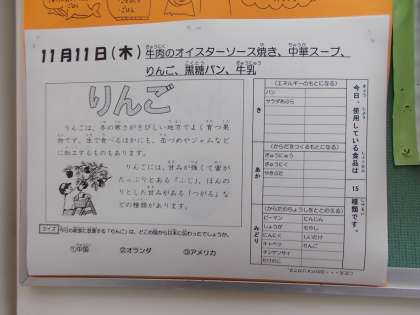 11月11日(木) 牛肉のオイスターソース焼き、中華スープ、
りんご、黒糖パン、牛乳
りんご
りんごは、冬の寒さがきびしい地方でよく育つ果
物です。生で食べるほかにも、缶づめやジャムなど
に加工するものもあります。
りんごには、甘みが強くて蜜が
たっぷりとある「ふじ」、ほんの
りとした甘みがある「つがる」など
の種類があります。
クイズ 今日の給食に登場する「りんご」は、どこの国から日本に伝わったでしょうか。
①中国 ②オランダ ③アメリカ
今日、使用している食品は 15 種類です。
き
(エネルギーのもとになる)
パン
サラダあぶら
あか
(からだをつくるもとになる)
ぎゅうにゅう
ぎゅうにく
やきぶた
みどり
(からだのちょうしをととのえる)
ピーマン にんじん
しょうが もやし
にんにく しいたけ
キャベツ りんご
チンゲンサイ
たけのこ